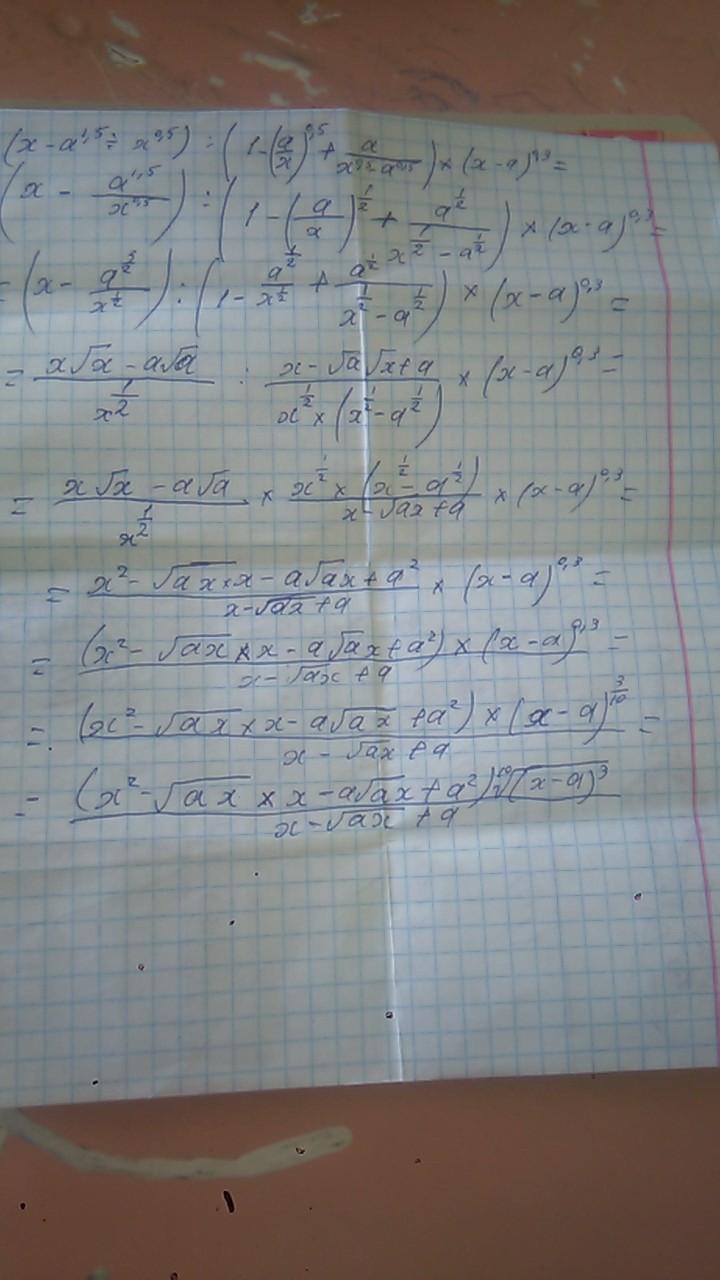 (x - a^{1,5} ÷ x^{0,5}) : (1 - (a/x)^{0,5} + a/(x^{0,5} - a^{0,5})) × (x - a)^{0,3} =
(x - a^{1,5}/x^{0,5}) : (1 - (a/x)^{1/2} + a^{1/2}/(x^{1/2} - a^{1/2})) × (x - a)^{0,3} =
= (x - a^{3/2}/x^{1/2}) : (1 - a^{1/2}/x^{1/2} + a^{1/2}/(x^{1/2} - a^{1/2})) × (x - a)^{0,3} =
= (x√x - a√a)/x^{1/2} : (x - √a√x + a)/(x^{1/2} × (x^{1/2} - a^{1/2})) × (x - a)^{0,3} =
= (x√x - a√a)/x^{1/2} × (x^{1/2} × (x^{1/2} - a^{1/2}))/(x - √ax + a) × (x - a)^{0,3} =
= (x² - √ax × x - a√ax + a²)/(x - √ax + a) × (x - a)^{0,3} =
= ((x² - √ax × x - a√ax + a²) × (x - a)^{0,3})/(x - √ax + a) =
= ((x² - √ax × x - a√ax + a²) × (x - a)^{3/10})/(x - √ax + a) =
= ((x² - √ax × x - a√ax + a²) ¹⁰√(x - a)³)/(x - √ax + a)